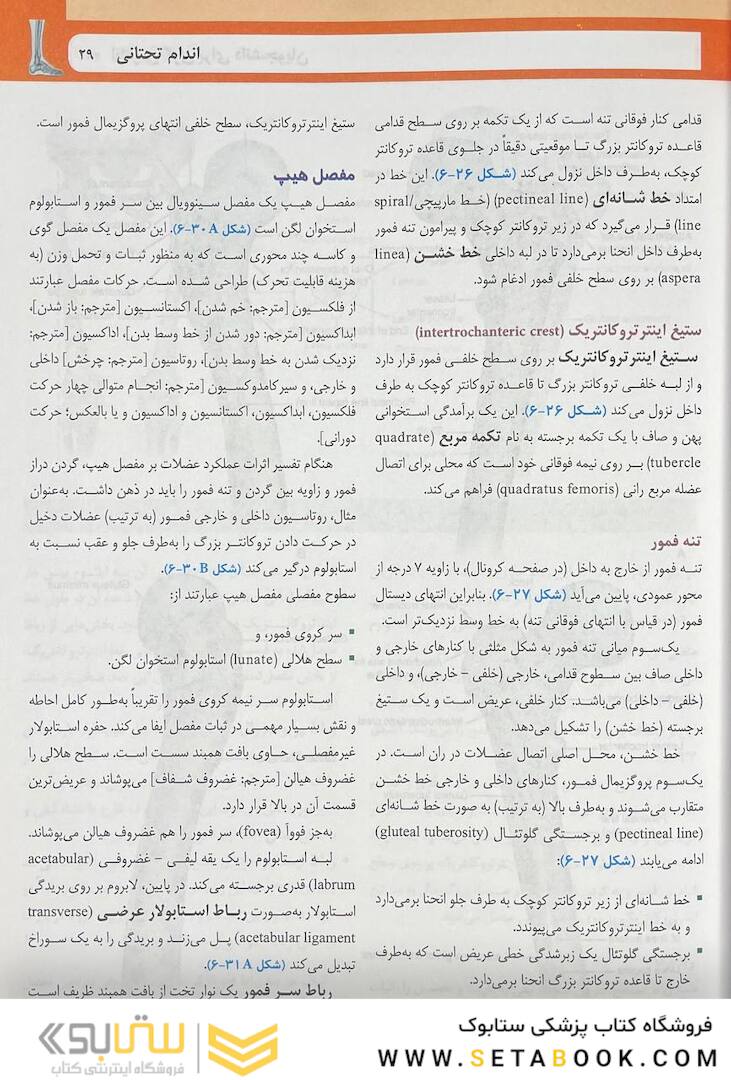 اندام تحتانی ۲۹
قدامی کنار فوقانی تنه است که از یک تکمه بر روی سطح قدامی
قاعده تروکانتر بزرگ تا موقعیتی دقیقاً در جلوی قاعده تروکانتر
کوچک، به‌طرف داخل نزول می‌کند (شکل ۲۶-۶). این خط در
امتداد خط شانه‌ای (pectineal line) (خط مارپیچی/spiral
line) قرار می‌گیرد که در زیر تروکانتر کوچک و پیرامون تنه فمور
به‌طرف داخل انحنا برمی‌دارد تا در لبه داخلی خط خشن (linea
aspera) بر روی سطح خلفی فمور ادغام شود.
ستیغ اینترتروکانتریک (intertrochanteric crest)
ستیغ اینترتروکانتریک بر روی سطح خلفی فمور قرار دارد
و از لبه خلفی تروکانتر بزرگ تا قاعده تروکانتر کوچک به طرف
داخل نزول می‌کند (شکل ۲۶-۶). این یک برآمدگی استخوانی
پهن و صاف با یک تکمه برجسته به نام تکمه مربع (quadrate
tubercle) بر روی نیمه فوقانی خود است که محلی برای اتصال
عضله مربع رانی (quadratus femoris) فراهم می‌کند.
تنه فمور
تنه فمور از خارج به داخل (در صفحه کرونال)، با زاویه ۷ درجه از
محور عمودی، پایین می‌آید (شکل ۲۷-۶). بنابراین انتهای دیستال
فمور (در قیاس با انتهای فوقانی تنه) به خط وسط نزدیک‌تر است.
یک‌سوم میانی تنه فمور به شکل مثلثی با کنارهای خارجی و
داخلی صاف بین سطوح قدامی، خارجی (خلفی - خارجی)، و داخلی
(خلفی - داخلی) می‌باشد. کنار خلفی، عریض است و یک ستیغ
برجسته (خط خشن) را تشکیل می‌دهد.
خط خشن، محل اصلی اتصال عضلات در ران است. در
یک‌سوم پروگزیمال فمور، کنارهای داخلی و خارجی خط خشن
متقارب می‌شوند و به‌طرف بالا (به ترتیب) به صورت خط شانه‌ای
(pectineal line) و برجستگی گلوتئال (gluteal tuberosity)
ادامه می‌یابند (شکل ۲۷-۶):
▪ خط شانه‌ای از زیر تروکانتر کوچک به طرف جلو انحنا برمی‌دارد
و به خط اینترتروکانتریک می‌پیوندد.
▪ برجستگی گلوتئال یک زبرشدگی خطی عریض است که به‌طرف
خارج تا قاعده تروکانتر بزرگ انحنا برمی‌دارد.
ستیغ اینترتروکانتریک، سطح خلفی انتهای پروگزیمال فمور است.
مفصل هیپ
مفصل هیپ یک مفصل سینوویال بین سر فمور و استابولوم
استخوان لگن است (شکل ۳۰A-۶). این مفصل یک مفصل گوی
و کاسه چند محوری است که به منظور ثبات و تحمل وزن (به
هزینه قابلیت تحرک) طراحی شده است. حرکات مفصل عبارتند
از فلکسیون [مترجم: خم شدن]، اکستانسیون [مترجم: باز شدن]،
ابداکسیون [مترجم: دور شدن از خط وسط بدن]، اداکسیون [مترجم:
نزدیک شدن به خط وسط بدن]، روتاسیون [مترجم: چرخش] داخلی
و خارجی، و سیرکامدوکسیون [مترجم: انجام متوالی چهار حرکت
فلکسیون، ابداکسیون، اکستانسیون و اداکسیون و یا بالعکس؛ حرکت
دورانی].
هنگام تفسیر اثرات عملکرد عضلات بر مفصل هیپ، گردن دراز
فمور و زاویه بین گردن و تنه فمور را باید در ذهن داشت. به‌عنوان
مثال، روتاسیون داخلی و خارجی فمور (به ترتیب) عضلات دخیل
در حرکت دادن تروکانتر بزرگ را به‌طرف جلو و عقب نسبت به
استابولوم درگیر می‌کند (شکل ۳۰B-۶).
سطوح مفصلی مفصل هیپ عبارتند از:
▪ سر کروی فمور، و
▪ سطح هلالی (lunate) استابولوم استخوان لگن.
استابولوم سر نیمه کروی فمور را تقریباً به‌طور کامل احاطه
و نقش بسیار مهمی در ثبات مفصل ایفا می‌کند. حفره استابولار
غیرمفصلی، حاوی بافت همبند سست است. سطح هلالی را
غضروف هیالن [مترجم: غضروف شفاف] می‌پوشاند و عریض‌ترین
قسمت آن در بالا قرار دارد.
به‌جز فووآ (fovea)، سر فمور را هم غضروف هیالن می‌پوشاند.
لبه استابولوم را یک یقه لیفی - غضروفی (acetabular
labrum) قدری برجسته می‌کند. در پایین، لابروم بر روی بریدگی
استابولار به‌صورت رباط استابولار عرضی (transverse
acetabular ligament) پل می‌زند و بریدگی را به یک سوراخ
تبدیل می‌کند (شکل ۳۱A-۶).
رباط سر فمور یک نوار تخت از بافت همبند ظریف است
فروشگاه کتاب پزشکی ستابوک
WWW.SETABOOK.COM
ستابوک
فروشگاه اینترنتی کتاب